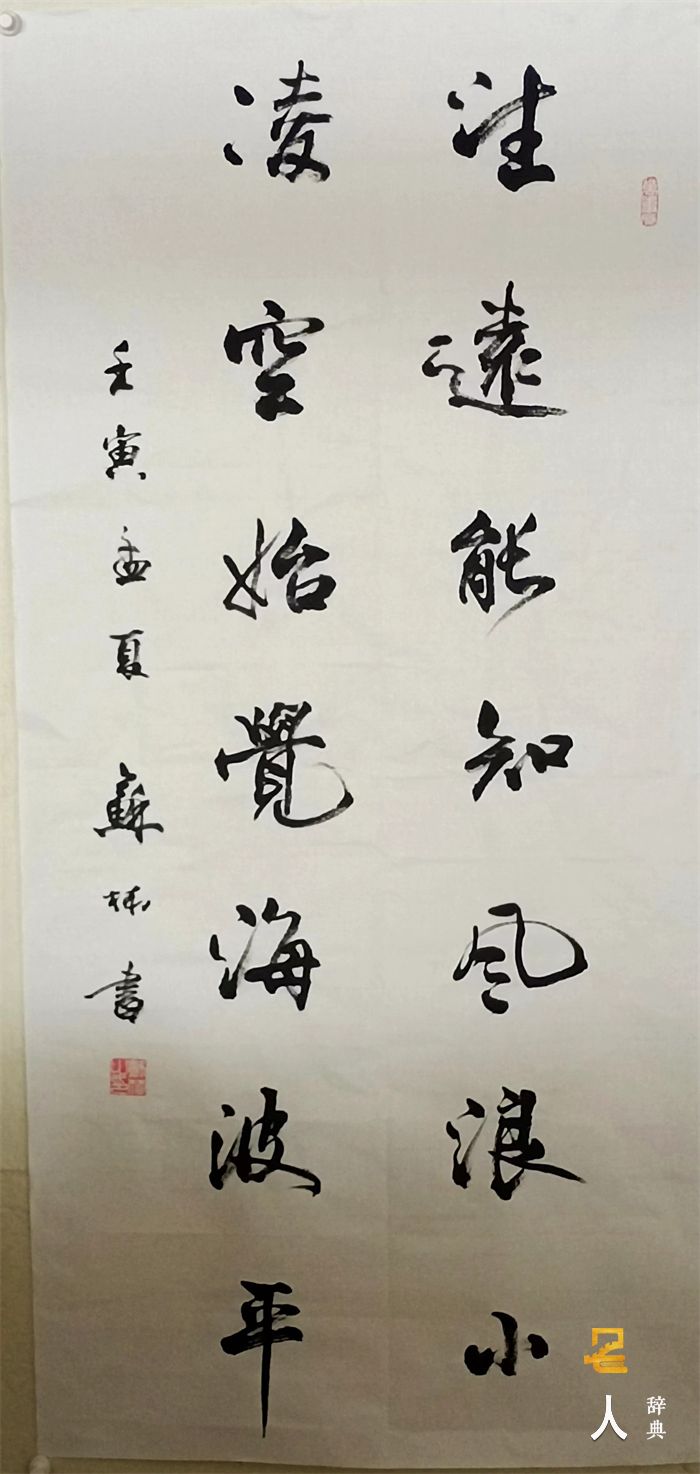 望遠能知风浪小
凌空始覺海波平
壬寅孟夏 蘇 書
名人
辞典